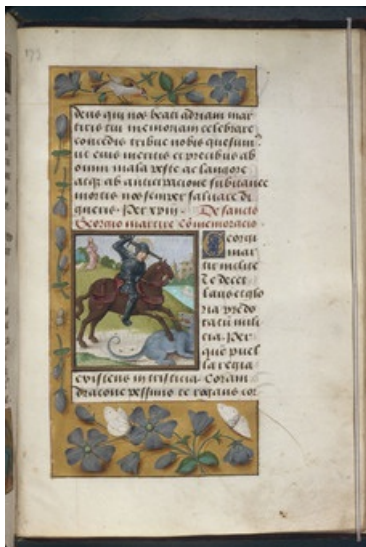 Deus qui nos beati adriani mar
tiris tui memoriam celebrare
concedis tribue nobis quesumꝰ
ut eius meritis et precibus ab
omni mala peste ac langore
atqꝫ ab anticipacione subitanee
mortis nos semper saluare di
gneris. Per xp̄m. De sancto
Georgio martire cōmemoracio.
Georgi
mar
tir inclite
Te decet
laus et glo
ria predo
tatū mili
cia. Per
quē puel
la regia
existens in tristicia Coram
dracone pessimo te rogans cor